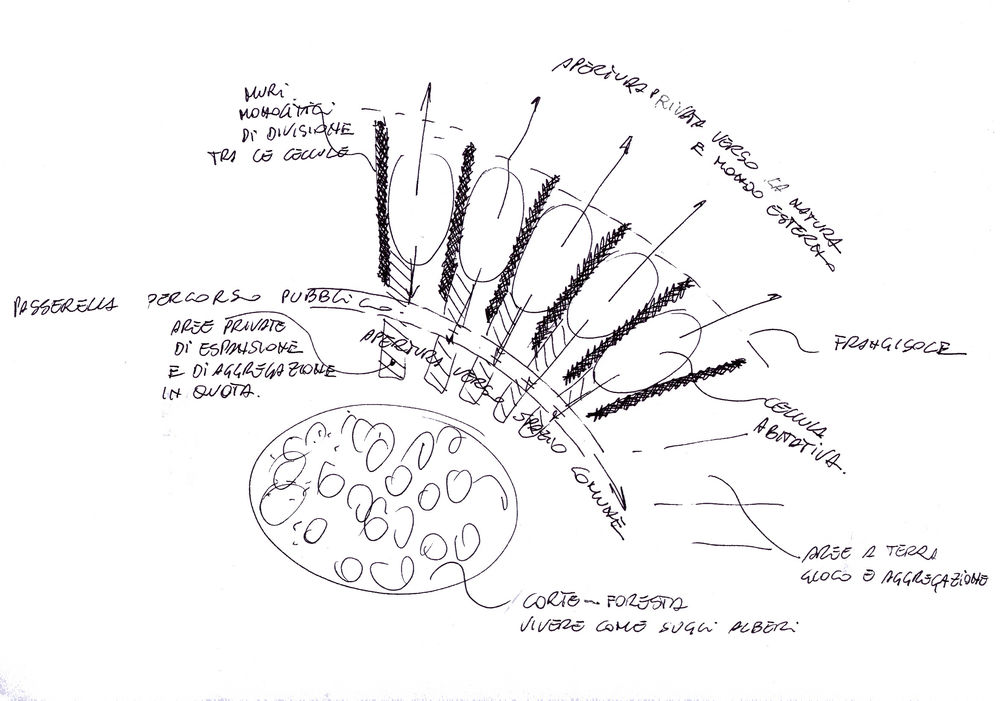 MURI
MONOLITICI
DI DIVISIONE
TRA LE CELLULE
APERTURA PRIVATA VERSO LA NATURA
E MONDO ESTERNO
PASSERELLA PERCORSO PUBBLICO
AREE PRIVATE
DI ESPANSIONE
E DI AGGREGAZIONE
IN QUOTA.
APERTURA VERSO SPAZIO COMUNE
FRANGISOLE
CELLULA
ABITATIVA.
AREE A TERRA
GIOCO E AGGREGAZIONE
CORTE-FORESTA
VIVERE COME SUGLI ALBERI